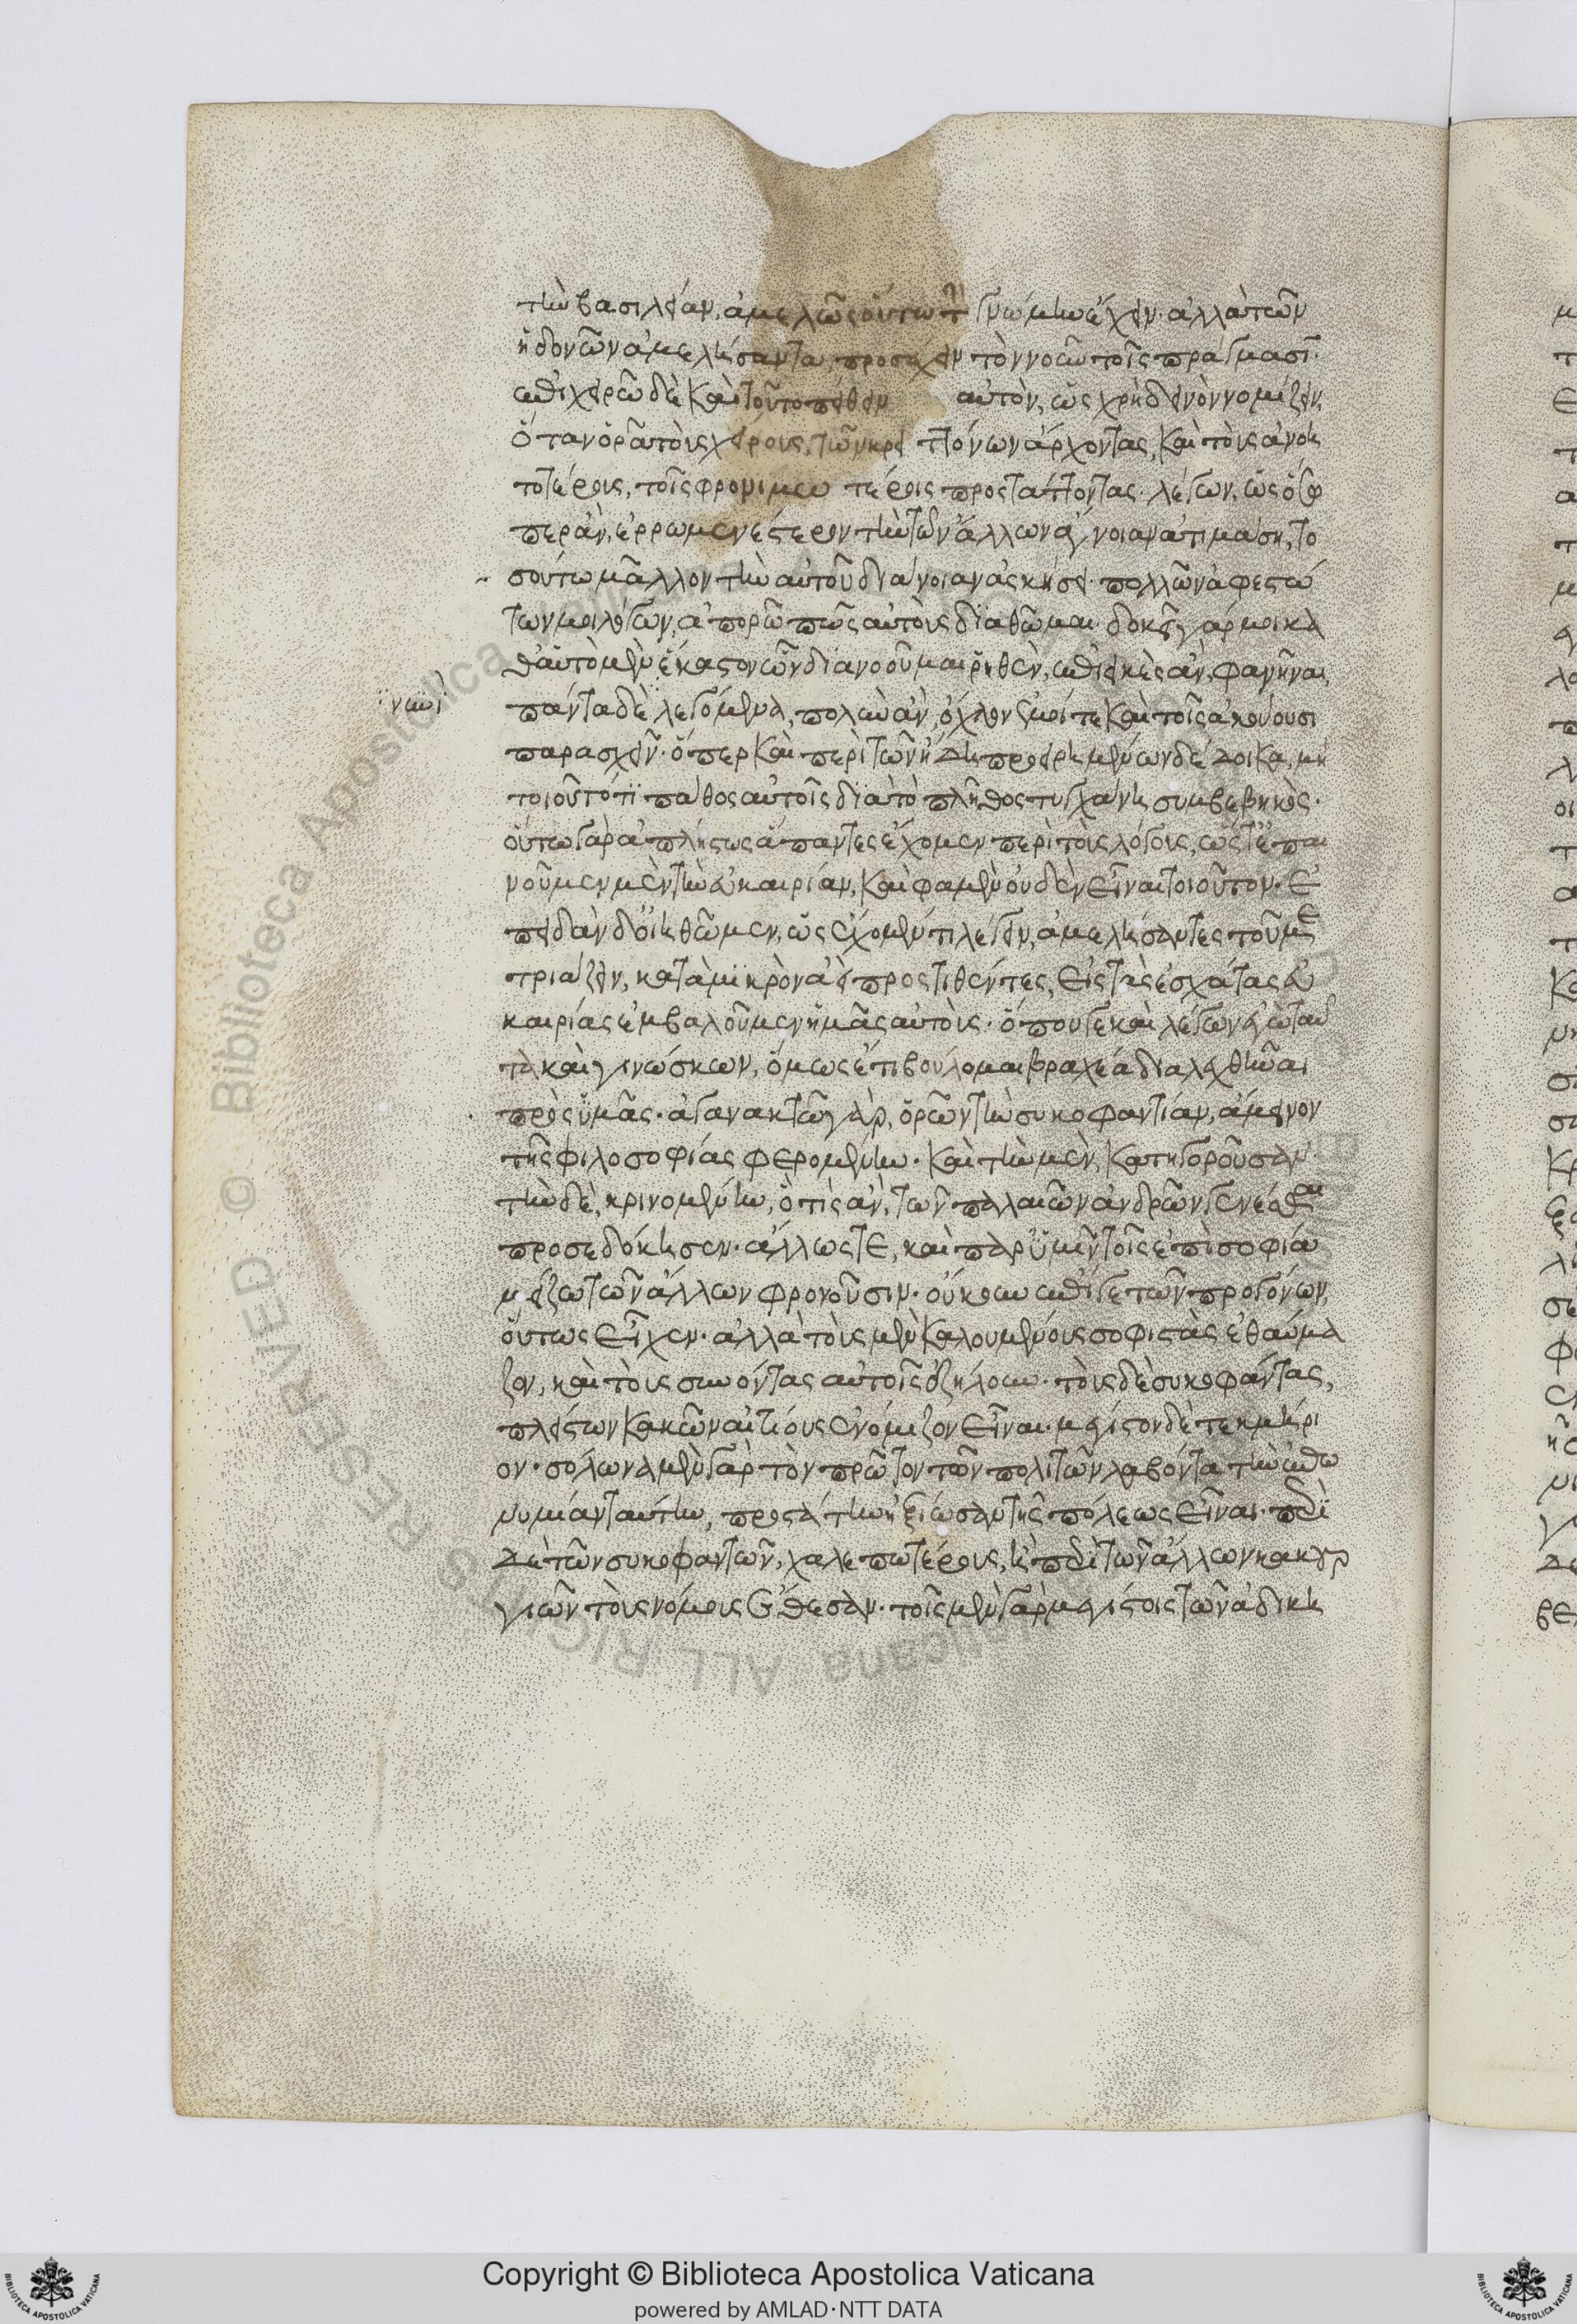 τὴν βασιλείαν, ἀμελῶς οὕτω τὴν γνώμην ἔχειν· ἀλλὰ τῶν
ἡδονῶν ἀμελήσαντα, προσέχειν τὸν νοῦν τοῖς πράγμασι·
ἐπιχειρῶ δὲ καὶ τοῦτο πείθειν αὐτὸν, ὡς χρὴ δεινὸν νομίζειν,
ὅταν ὁρᾶ τοὺς χείρους, τῶν κρειττόνων ἄρχοντας, καὶ τοὺς ἀνοη
τοτέρους, τοῖς φρονιμωτέροις προστάττοντας· λέγων, ὡς ὅσω
περ ἂν, ἐρρωμενέστερον τὴν τῶν ἄλλων ἄνοιαν ἀτιμάση, το
σούτω μᾶλλον τὴν αὐτοῦ διάνοιαν ἀσκήσει· πολλῶν ἀφεστώ
των μοι λόγων, ἀπορῶ πῶς αὐτοὺς διαθῶμαι· δοκεῖ γάρ μοι κα
θαὐτὸ μὲν ἕκαστον ὧν διανοοῦμαι ῥηθὲν, ἐπιεικὲς ἂν, φανῆναι,
νυνὶ
πάντα δὲ λεγόμενα, πολὺν ἂν, ὄχλον ἐμοί τε καὶ τοῖς ἀκούουσι
παρασχεῖν· ὅπερ καὶ περὶ τῶν ἤδη προειρημένων δέδοικα, μὴ
τοιοῦτό τι πάθος αὐτοῖς διὰ τὸ πλῆθος τυγχάνη συμβεβηκός·
οὕτω γὰρ ἀπλήστως ἅπαντες ἔχομεν περὶ τοὺς λόγους, ὥστ' ἐπαι
νοῦμεν μὲν τὴν εὐκαιρίαν, καὶ φαμὲν οὐδὲν εἶναι τοιοῦτον· ἐ
πειδὰν δ' οἰηθῶμεν, ὡς ἔχομέν τι λέγειν, ἀμελήσαντες τοῦ με
τριάζειν, κατὰ μικρὸν ἀεὶ προστιθέντες, εἰς τὰς ἐσχάτας ἀ
καιρίας ἐμβαλοῦμεν ἡμᾶς αὐτούς· ὅπου γε καὶ λέγων ἐγὼ ταῦ
τα καὶ γινώσκων, ὅμως ἔτι βούλομαι βραχέα διαλεχθῆναι
πρὸς ὑμᾶς· ἀγανακτῶ γὰρ, ὁρῶν τὴν συκοφαντίαν, ἄμεινον
τῆς φιλοσοφίας φερομένην· καὶ τὴν μὲν, κατηγοροῦσαν·
τὴν δὲ, κρινομένην, ὃ τίς ἂν, τῶν παλαιῶν ἀνδρῶν γενέσθαι
προσεδόκησεν· ἄλλως τε, καὶ παρ' ὑμῖν τοῖς ἐπὶ σοφία
μεῖζω τῶν ἄλλων φρονοῦσιν· οὔκουν ἐπί γε τῶν προγόνων,
οὕτως εἶχεν· ἀλλὰ τοὺς μὲν καλουμένους σοφιστὰς ἐθαύμα
ζον, καὶ τοὺς συνόντας αὐτοῖς ἐζήλουν· τοὺς δὲ συκοφάντας,
πλείστων κακῶν αἰτίους ἐνόμιζον εἶναι· μέγιστον δὲ τεκμήρι
ον· σόλωνα μὲν γὰρ τὸν πρῶτον τῶν πολιτῶν λαβόντα τὴν ἐπω
νυμίαν ταύτην, προστάτην ἠξίωσαν τῆς πόλεως εἶναι· περὶ
δὲ τῶν συκοφαντῶν, χαλεπωτέρους, ἢ περὶ τῶν ἄλλων κακουρ
γιῶν τοὺς νόμους ἔθεσαν· τοῖς μὲν γὰρ μεγίστοις τῶν ἀδικη
Copyright © Biblioteca Apostolica Vaticana
powered by AMLAD·NTT DATA